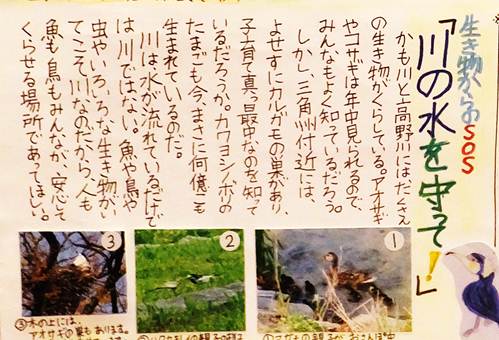 生き物からのSOS
「川の水を守って！」
かも川と高野川にはたくさん
の生き物がくらしている。アオサギ
やコサギは年中見られるので、
みんなもよく知っているだろう。
しかし、三角州付近には、
よせすにカルガモの巣があり、
子育て真っ最中なのを知って
いるだろうか。カワヨシノボリの
たまごも今、まさに何億こも
生まれているのだ。
川は水が流れているだけで
は川ではない。魚や鳥や
虫やいろいろな生き物がい
てこそ川なのだから、人も
魚も鳥もみんなが、安心して
くらせる場所であってほしい。
①
②
③
③木の上には、
アオサギの巣もあります。